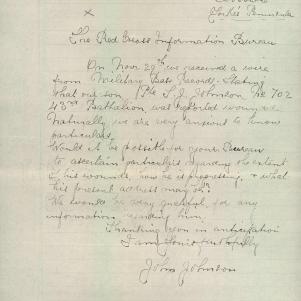 Yorke's Peninsula
x
The Red Cross Information Bureau
On Nov 29th we received a wire
from Military Base Records stating
that our son Pte S. J. Johnson No 702
43rd Battalion was reported wounded
Naturally we are very anxious to know
particulars.
Would it be possible for your Bureau
to ascertain particulars regarding the extent
of his wounds, how he is progressing, & what
his present address may be.
We would be very grateful for any
information regarding him.
Thanking you in anticipation
I am Yours faithfully
John Johnson